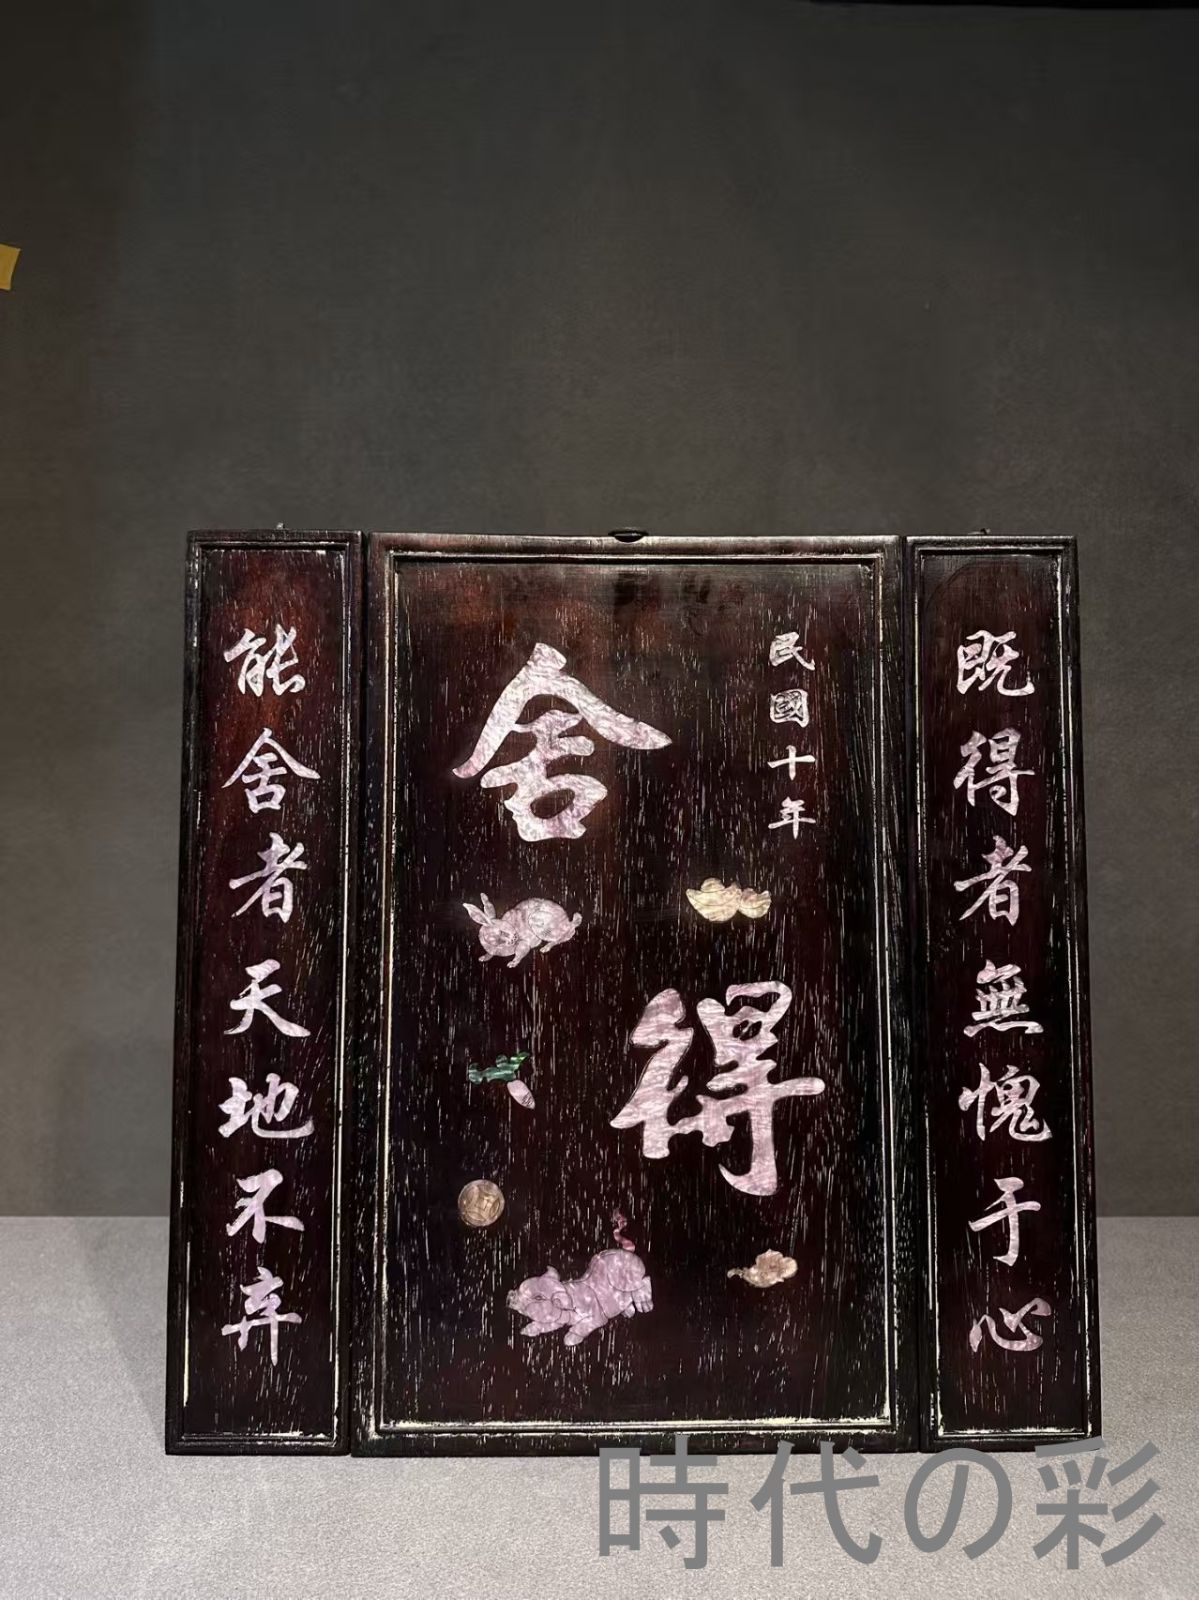 既得者無愧于心
民國十年
舍得
能舍者天地不弃
時代の彩